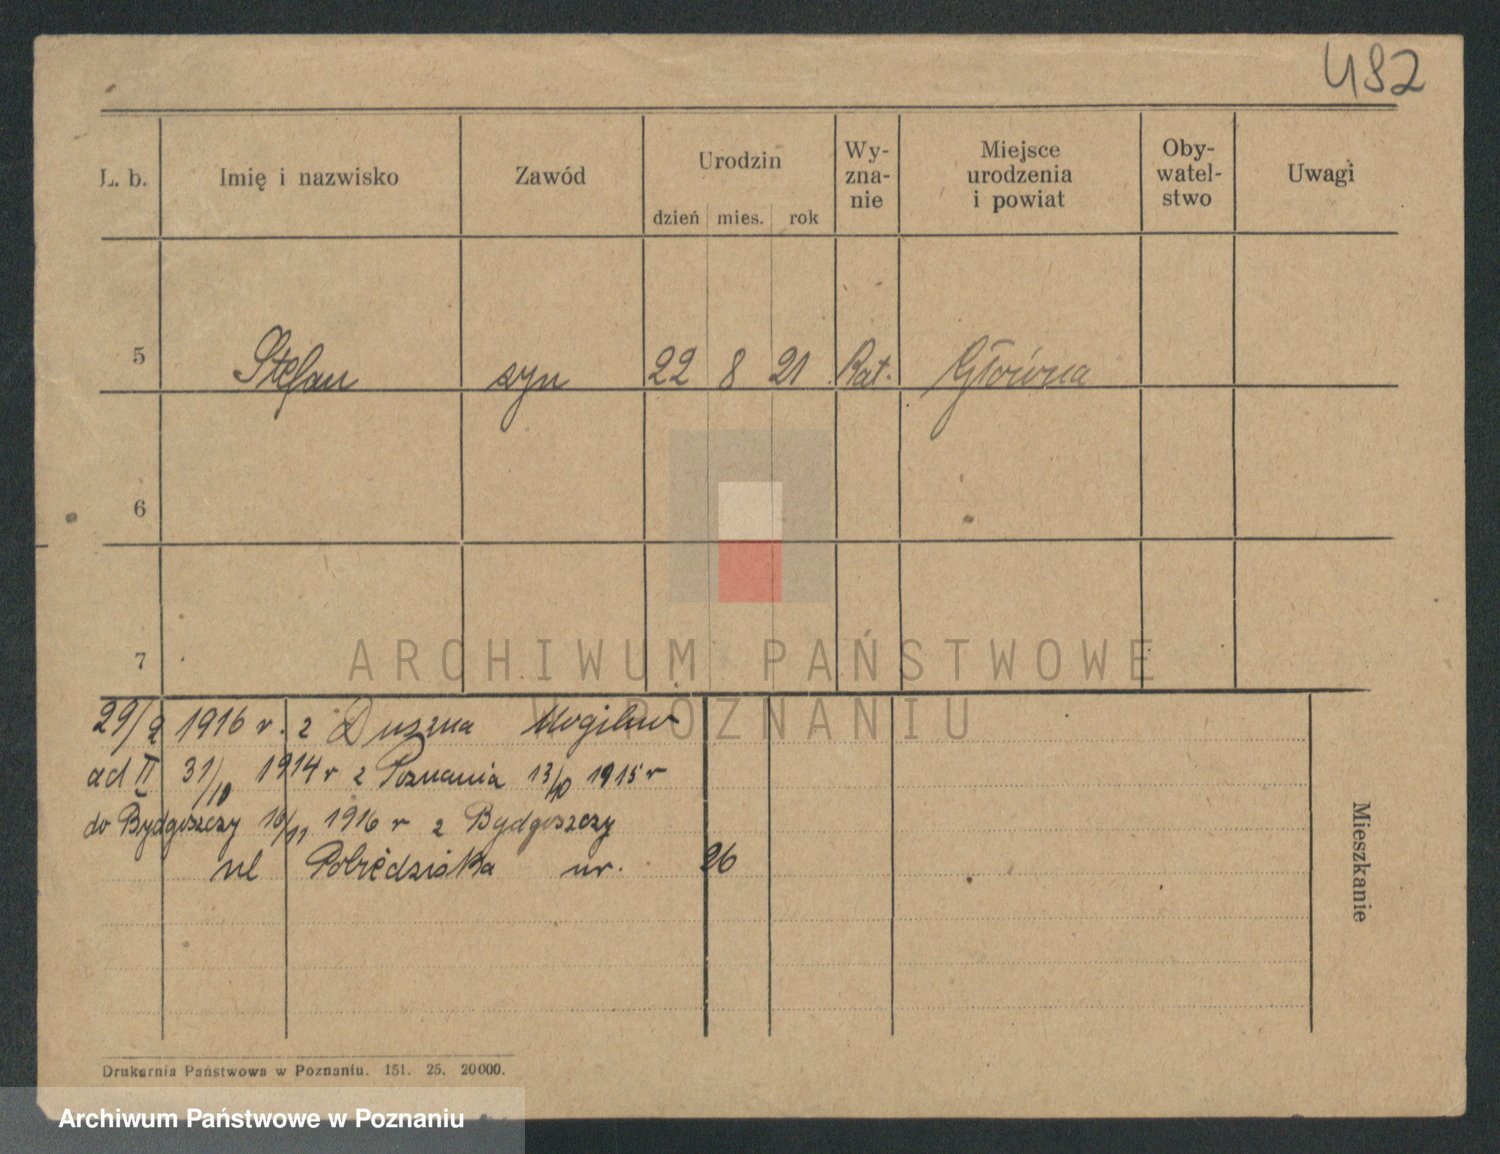 482
L. b. Imię i nazwisko Zawód Urodzin Wy- zna- nie Miejsce urodzenia i powiat Oby- watel- stwo Uwagi
dzień mies. rok
5 Stefan syn 22 8 21 Kat. Główna
6
7
29/9 1916 r. z Duszna Mogilno
ad II 31/10 1914 r z Poznania 13/10 1915 r
do Bydgoszczy 16/11 1916 r z Bydgoszczy
ul Pobiedziska nr. 26
Mieszkanie
Drukarnia Państwowa w Poznaniu. 151. 25. 20000.
ARCHIWUM PAŃSTWOWE
W POZNANIU
Archiwum Państwowe w Poznaniu